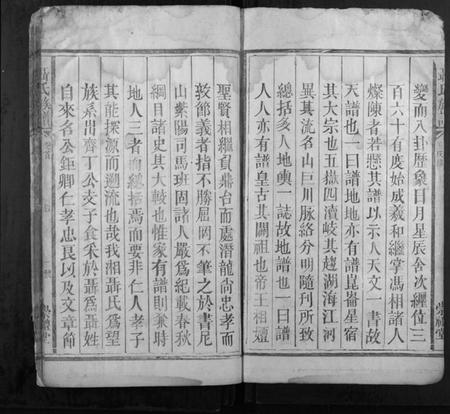 變而八卦歷象日月星辰舍次纏位三
百六十有度始成羲和繼掌馮相諸人
燦陳者若懸其譜以示人天文一書故
天譜也一曰譜地地亦有譜崑崙星宿
其大宗也五嶽四瀆岐其趨湖海江河
異其流名山巨川脈絡分明隨刋所致
總括多人地輿一誌故地譜也一曰譜
人人亦有譜皇古其闢祖也帝王祖壇
聖賢相繼負鼎台而處潛龍尚忠孝而
敦節義者指不勝屈罔不筆之於書尼
山紫陽司馬班固諸人嚴為紀載春秋
綱目諸史其大較也惟家有譜則兼時
地人三者而總括焉而要非仁人孝子
其能探源而遡流也哉我湘聶氏為望
族系出齊丁公支子食釆於聶為聶姓
自來名公鉅卿仁孝忠良以及文章節